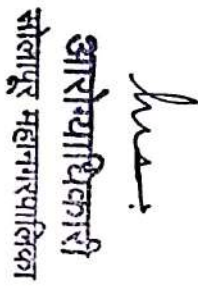 आरोग्याधिकारी
सोलापूर महानगरपालिका